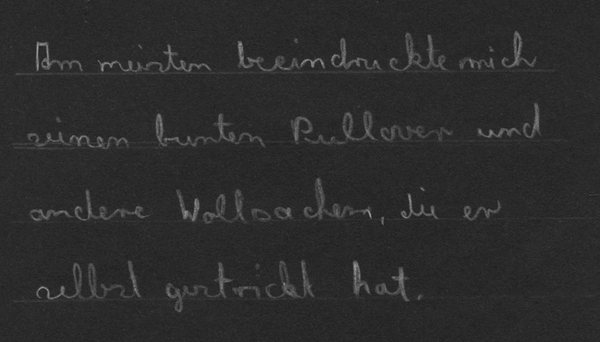 Am meisten beeindruckte mich
seinen bunten Pullover und
andere Wollsachen, die er
selbst gestrickt hat.